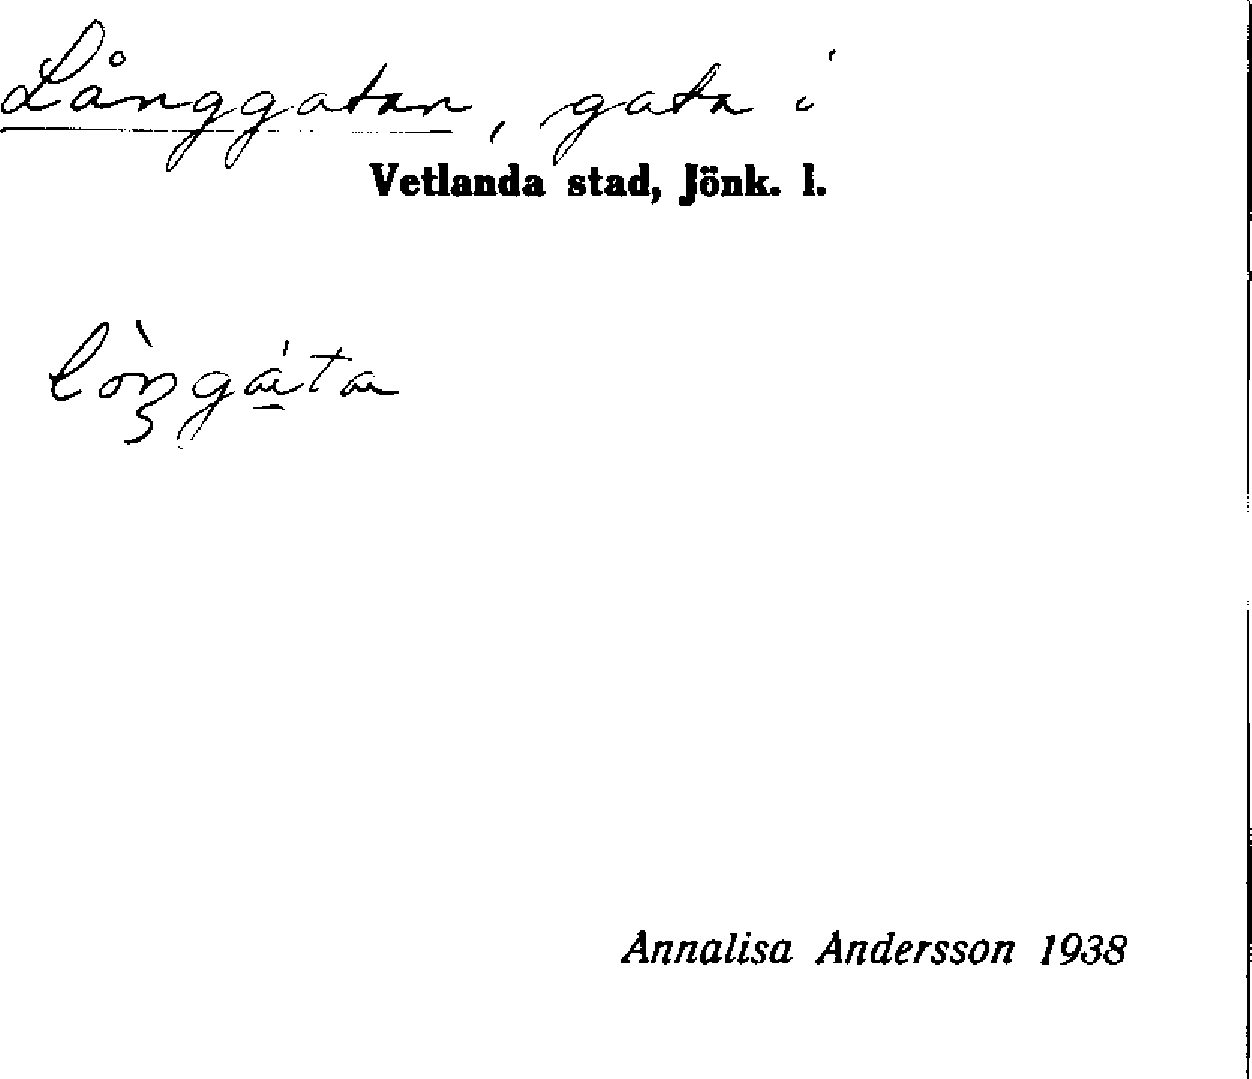 Långgatan, gata i
Vetlanda stad, Jönk. l.
lòŋgá̱ta
Annalisa Andersson 1938